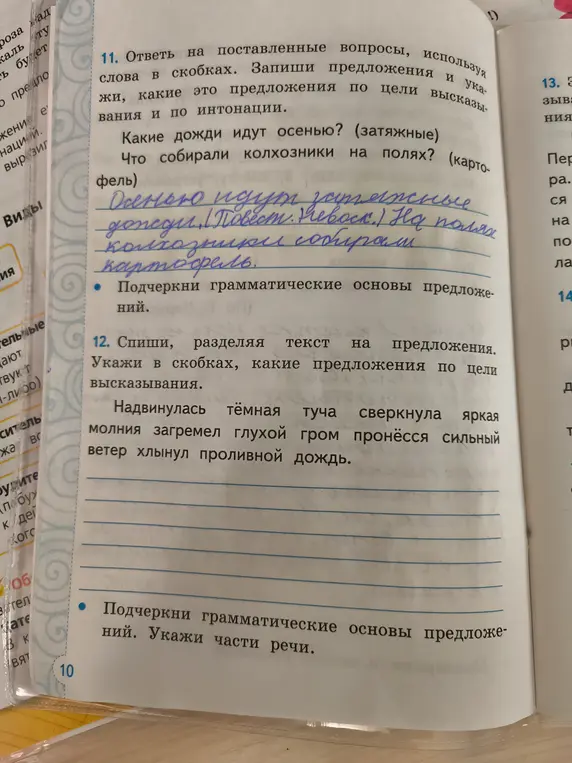 11. Ответь на поставленные вопросы, используя
слова в скобках. Запиши предложения и ука-
жи, какие это предложения по цели высказы-
вания и по интонации.
Какие дожди идут осенью? (затяжные)
Что собирали колхозники на полях? (карто-
фель)
Осенью идут затяжные
дожди. (Повест. Невоск.) На полях
колхозники собирали
картофель.
• Подчеркни грамматические основы предложе-
ний.
12. Спиши, разделяя текст на предложения.
Укажи в скобках, какие предложения по цели
высказывания.
Надвинулась тёмная туча сверкнула яркая
молния загремел глухой гром пронёсся сильный
ветер хлынул проливной дождь.
• Подчеркни грамматические основы предложе-
ний. Укажи части речи.
10
Виды
13.
14